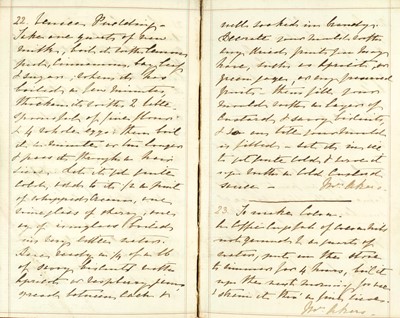 22. Venice Pudding.
Take one quart of new
milk, boil it with lemon
peel, Cinnamon, bay leaf
& sugar. when it has
boiled a few minutes,
thicken it with 2 table
spoonsful of fine flour
& 4 whole eggs: then boil
it a minute or two longer
& pass it through a hair
sieve. Let it get quite
cold, add to it 1/2 a pint
of whipped cream, one
wineglass of sherry, one
oz of isinglass (boiled
in very little water.
Have ready a 1/4 of a lb
of savoy biscuits with
apricot or raspberry jam
spread between each &
well soaked in brandy:
Decorate your mould with
any dried fruits you may
have, such as apricots, or
green gages, or any preserved
fruits. then fill your
mould with a layer of
custard, & savoy biscuits,
& so on till your mould
is filled. - set it in ice
to get quite cold, & serve it
up with a cold custard
sauce -
23. To make Cocoa.
A Coffee cup full of cocoa nibs
not ground. 2 quarts of
water, put on the stove
to simmer for 4 hours, boil it
up the next morning for use
& strain it thro' a fine sieve.